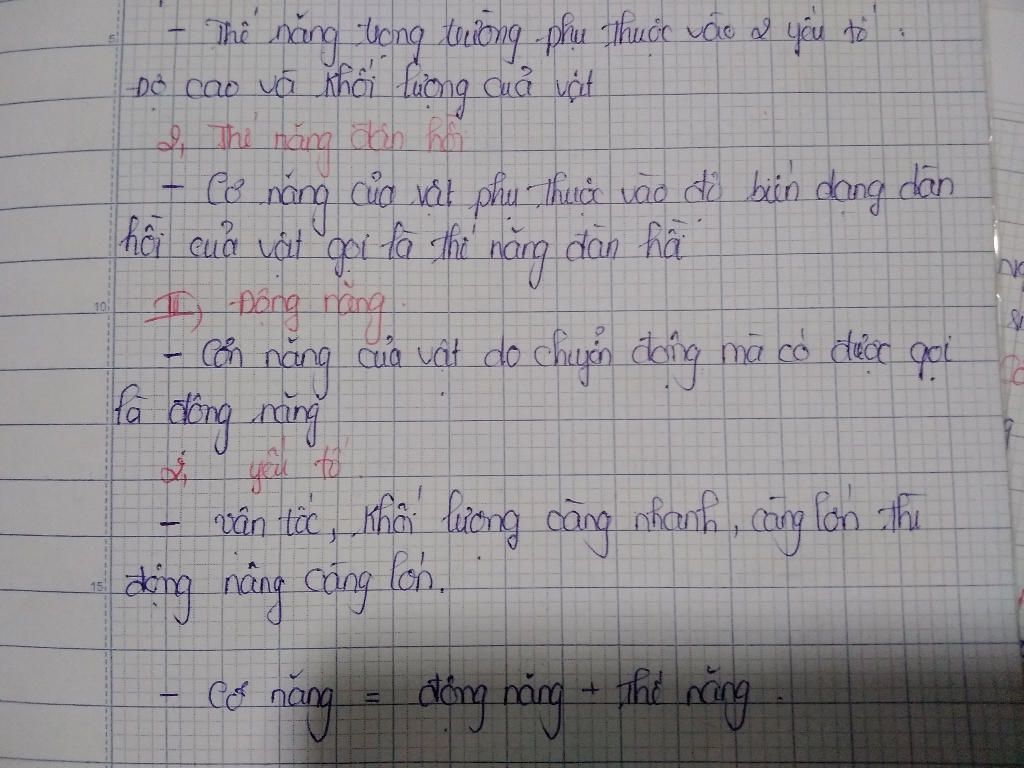 - Thế năng trọng trường phụ thuộc vào 2 yếu tố :
Độ cao và khối lượng của vật
2, Thế năng đàn hồi
- Cơ năng của vật phụ thuộc vào độ biến dạng đàn
hồi của vật gọi là thế năng đàn hồi
II, Động năng.
- Cơn năng của vật do chuyển động mà có được gọi
là động năng
2, yếu tố.
- vân tốc, khối lượng càng nhanh, càng lớn thì
động năng càng lớn.
- Cơ năng = động năng + thế năng.